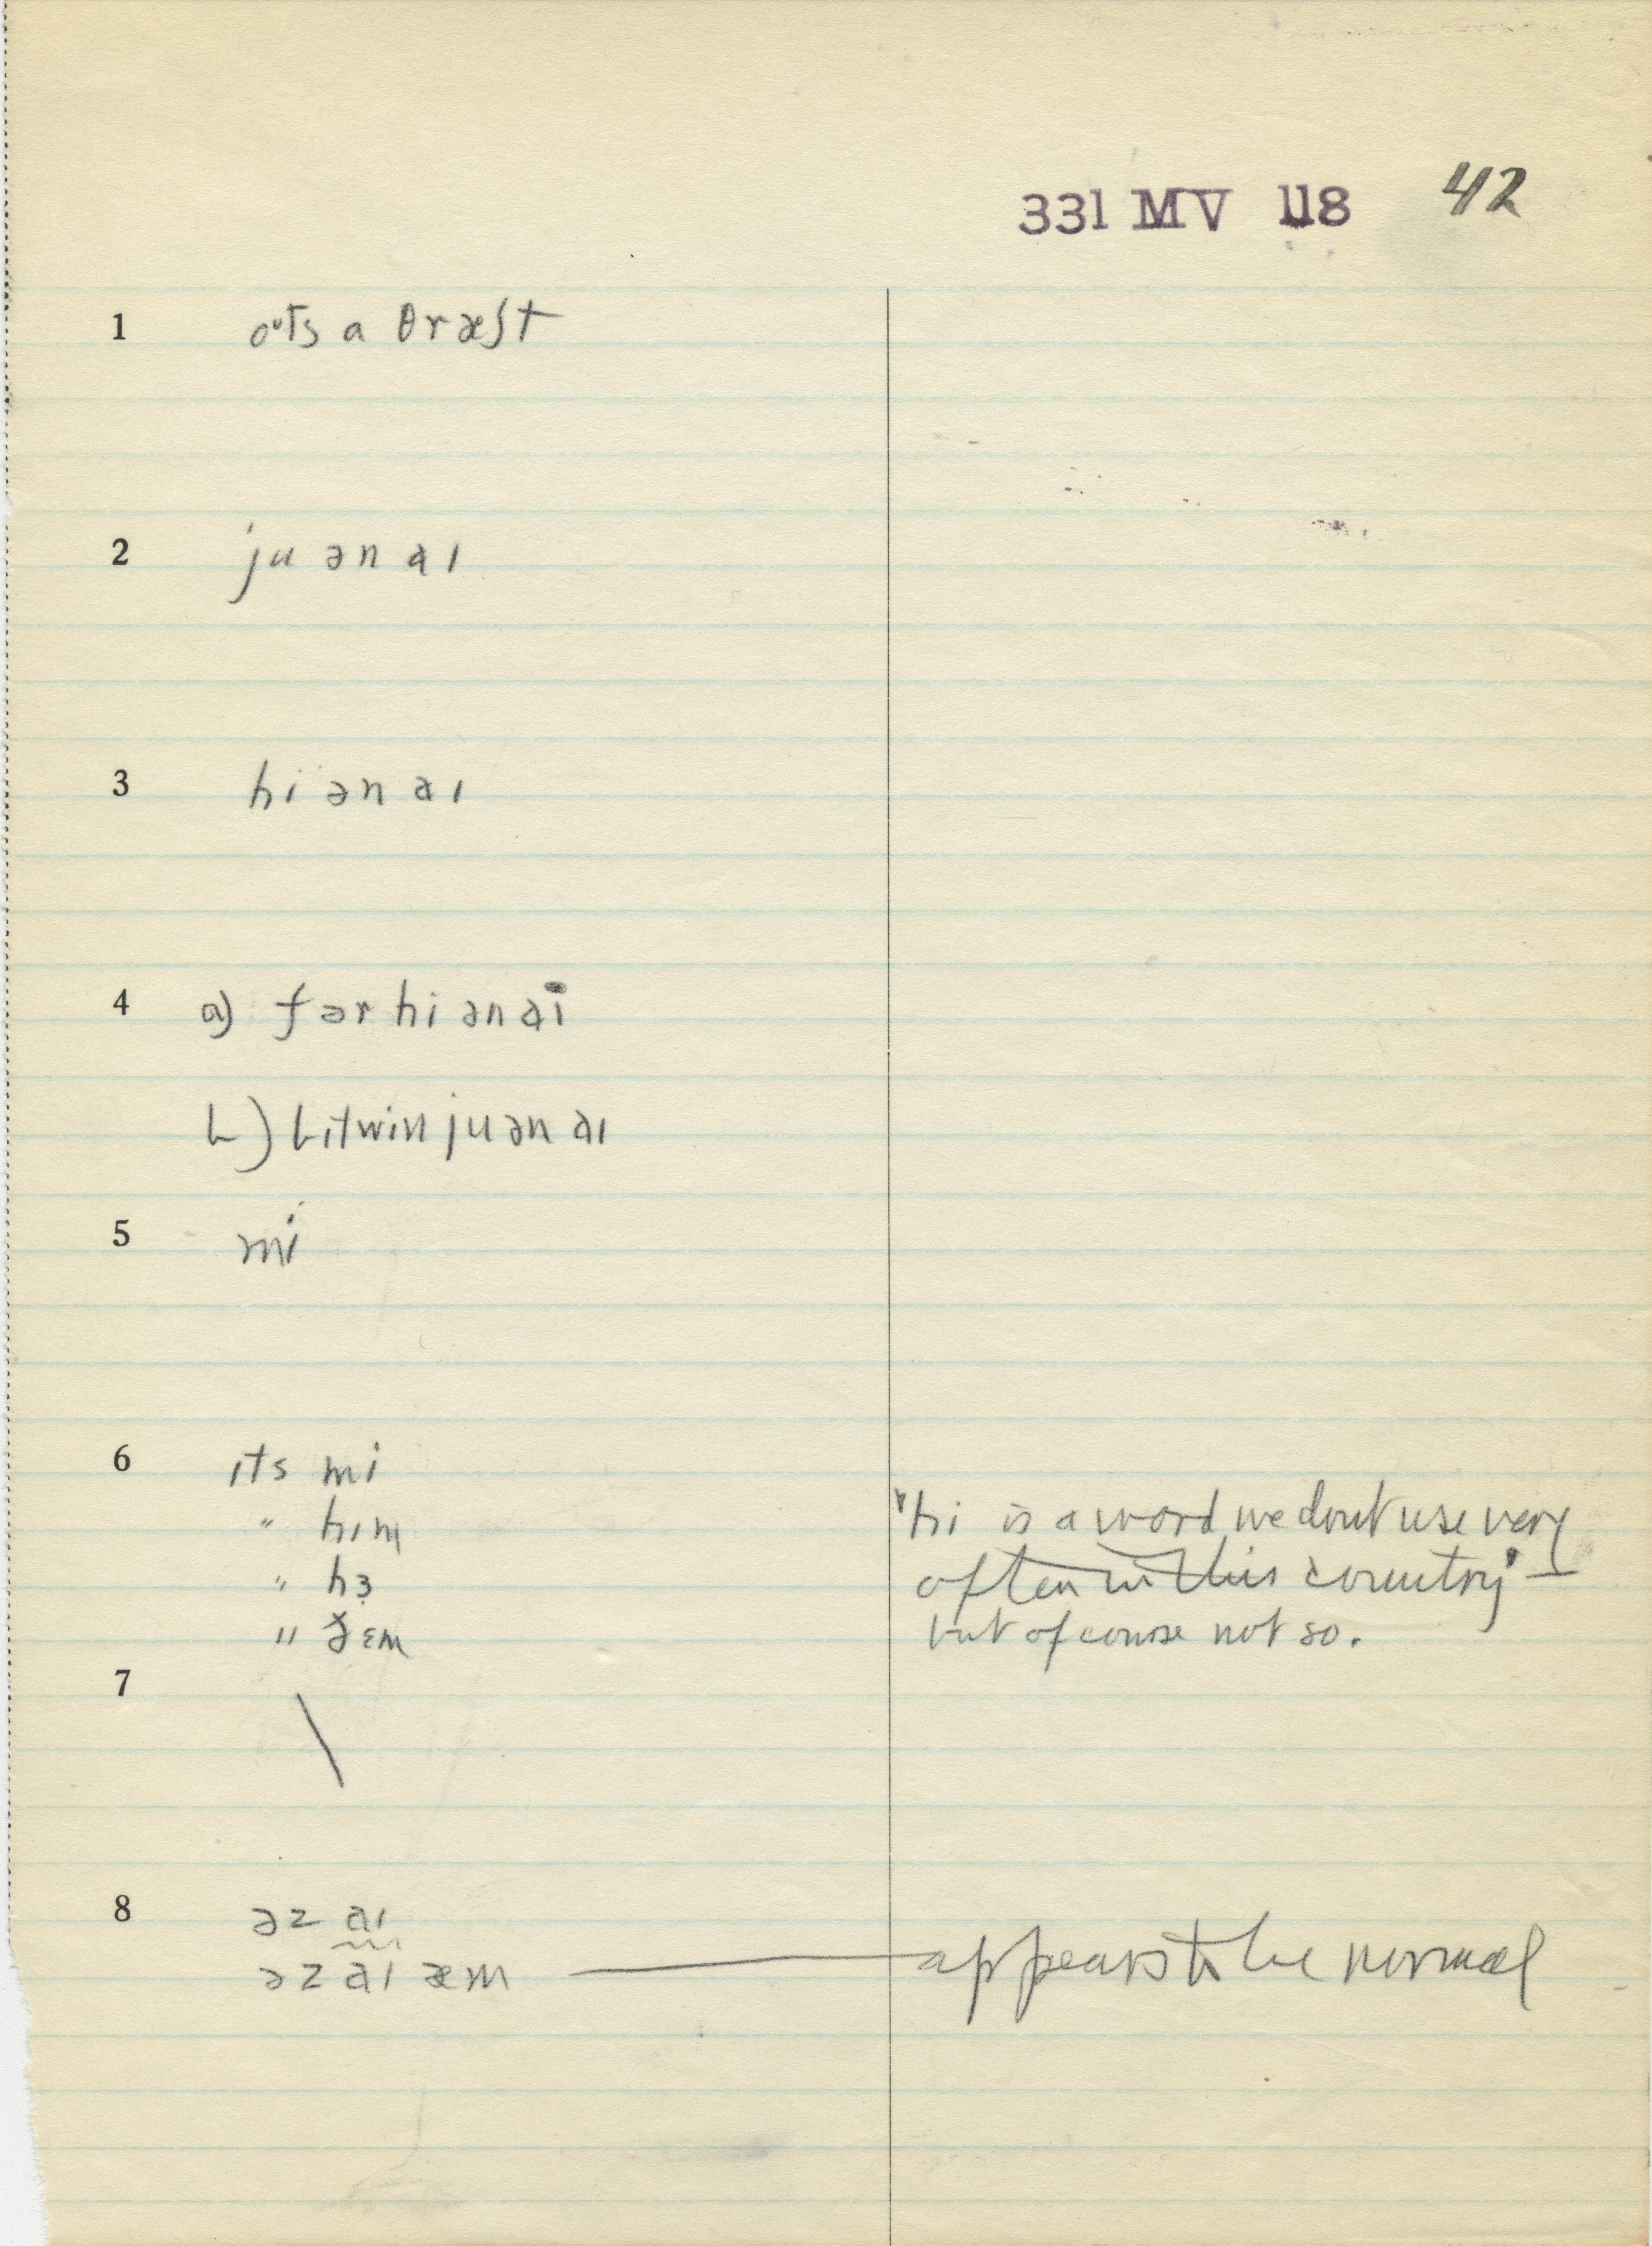 331 MV 118 42
1 oᵘts a θræʃt
2 ju ən aɪ
3 hi ən aɪ
4 a) fər hi ən aɪ
b) bitwin ju ən aɪ
5 mi
6 ɪts mi
" hɪm
" hɜ
" ðɛm
"hi is a word we dont use very
often in this country" —
but of course not so.
7 \
8 əz aɪ
əz aɪ æm — appears to be normal